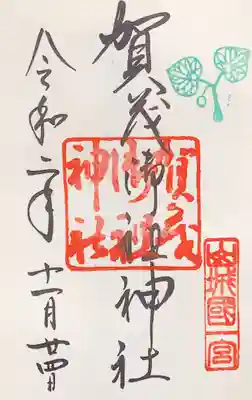 山城國一宮
賀茂御祖神社
賀茂
御祖
神社
令和二年十一月廿四日